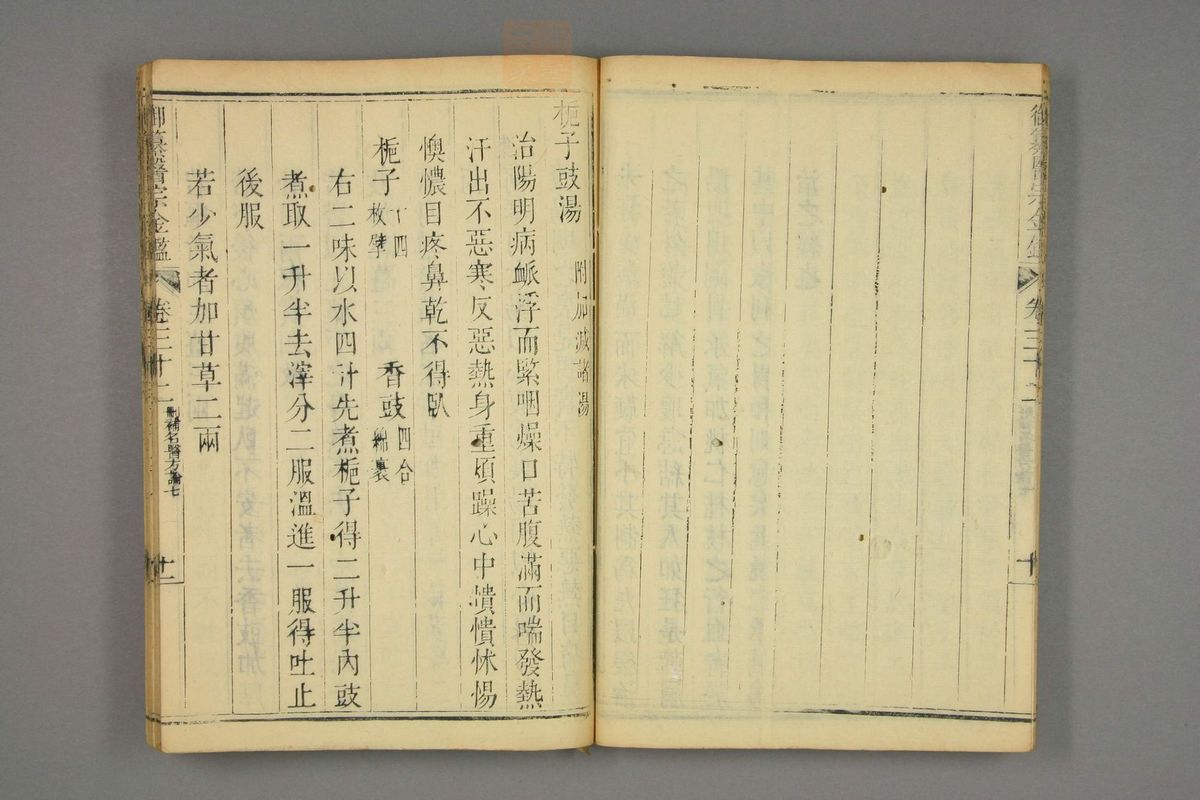 御纂醫宗金鑑 卷三十二
梔子豉湯 附加減諸湯
治陽明病䘑浮而緊咽燥口苦腹滿而喘發熱
汗出不惡寒反惡熱身重煩躁心中憒憒怵惕
懊憹目疼鼻乾不得臥
梔子 十四枚擘 香豉 四合綿裹
右二味以水四升先煮梔子得二升半內豉
煮取一升半去滓分二服溫進一服得吐止
後服
若少氣者加甘草二兩
御纂醫宗金鑑 卷三十二 刪補名醫方論七 十一